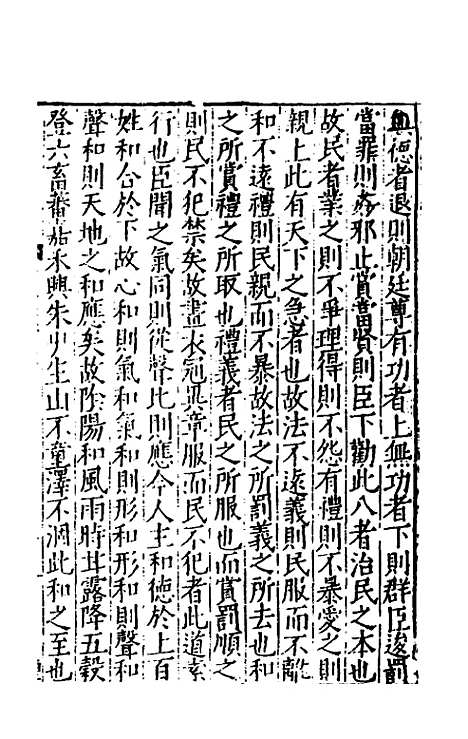 無德者退則朝廷尊有功者上無功者下則群臣逡罰
當罪則姦邪止賞當賢則臣下勸此八者治民之本也
故民者業之則不爭理得則不怨有禮則不暴愛之則
親上此有天下之急者也故法不遠義則民服而不離
和不遠禮則民親而不暴故法之所罰義之所去也和
之所賞禮之所取也禮義者民之所服也而賞罰順之
則民不犯禁矣故畫衣冠異章服而民不犯者此道素
行也臣聞之氣同則從聲比則應今人主和德於上百
姓和合於下故心和則氣和氣和則形和形和則聲和
聲和則天地之和應矣故陰陽和風雨時甘露降五穀
登六畜蕃嘉禾興朱屮生山不童澤不涸此和之至也